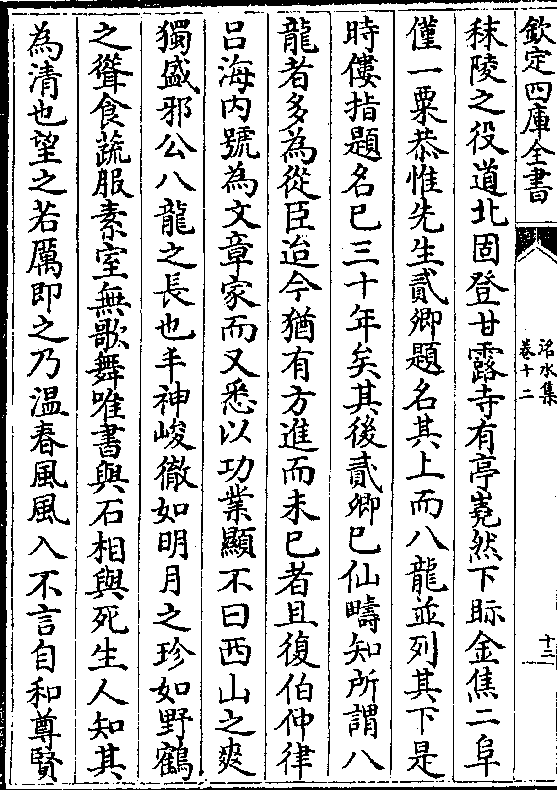 欽定四庫全書
洺水集
卷十二
十三
秣陵之役道北固登甘露寺有亭嶤然下眎金焦二阜
僅一粟恭惟先生貳卿題名其上而八龍並列其下是
時僂指題名已三十年矣其後貳卿已仙疇知所謂八
龍者多為從臣迨今猶有方進而未已者且復伯仲律
吕海内號為文章家而又悉以功業顯不曰西山之爽
獨盛邪公八龍之長也丰神峻徹如明月之珍如野鶴
之聳食蔬服素室無歌舞唯書與石相與死生人知其
為清也望之若厲即之乃温春風風人不言自和尊賢